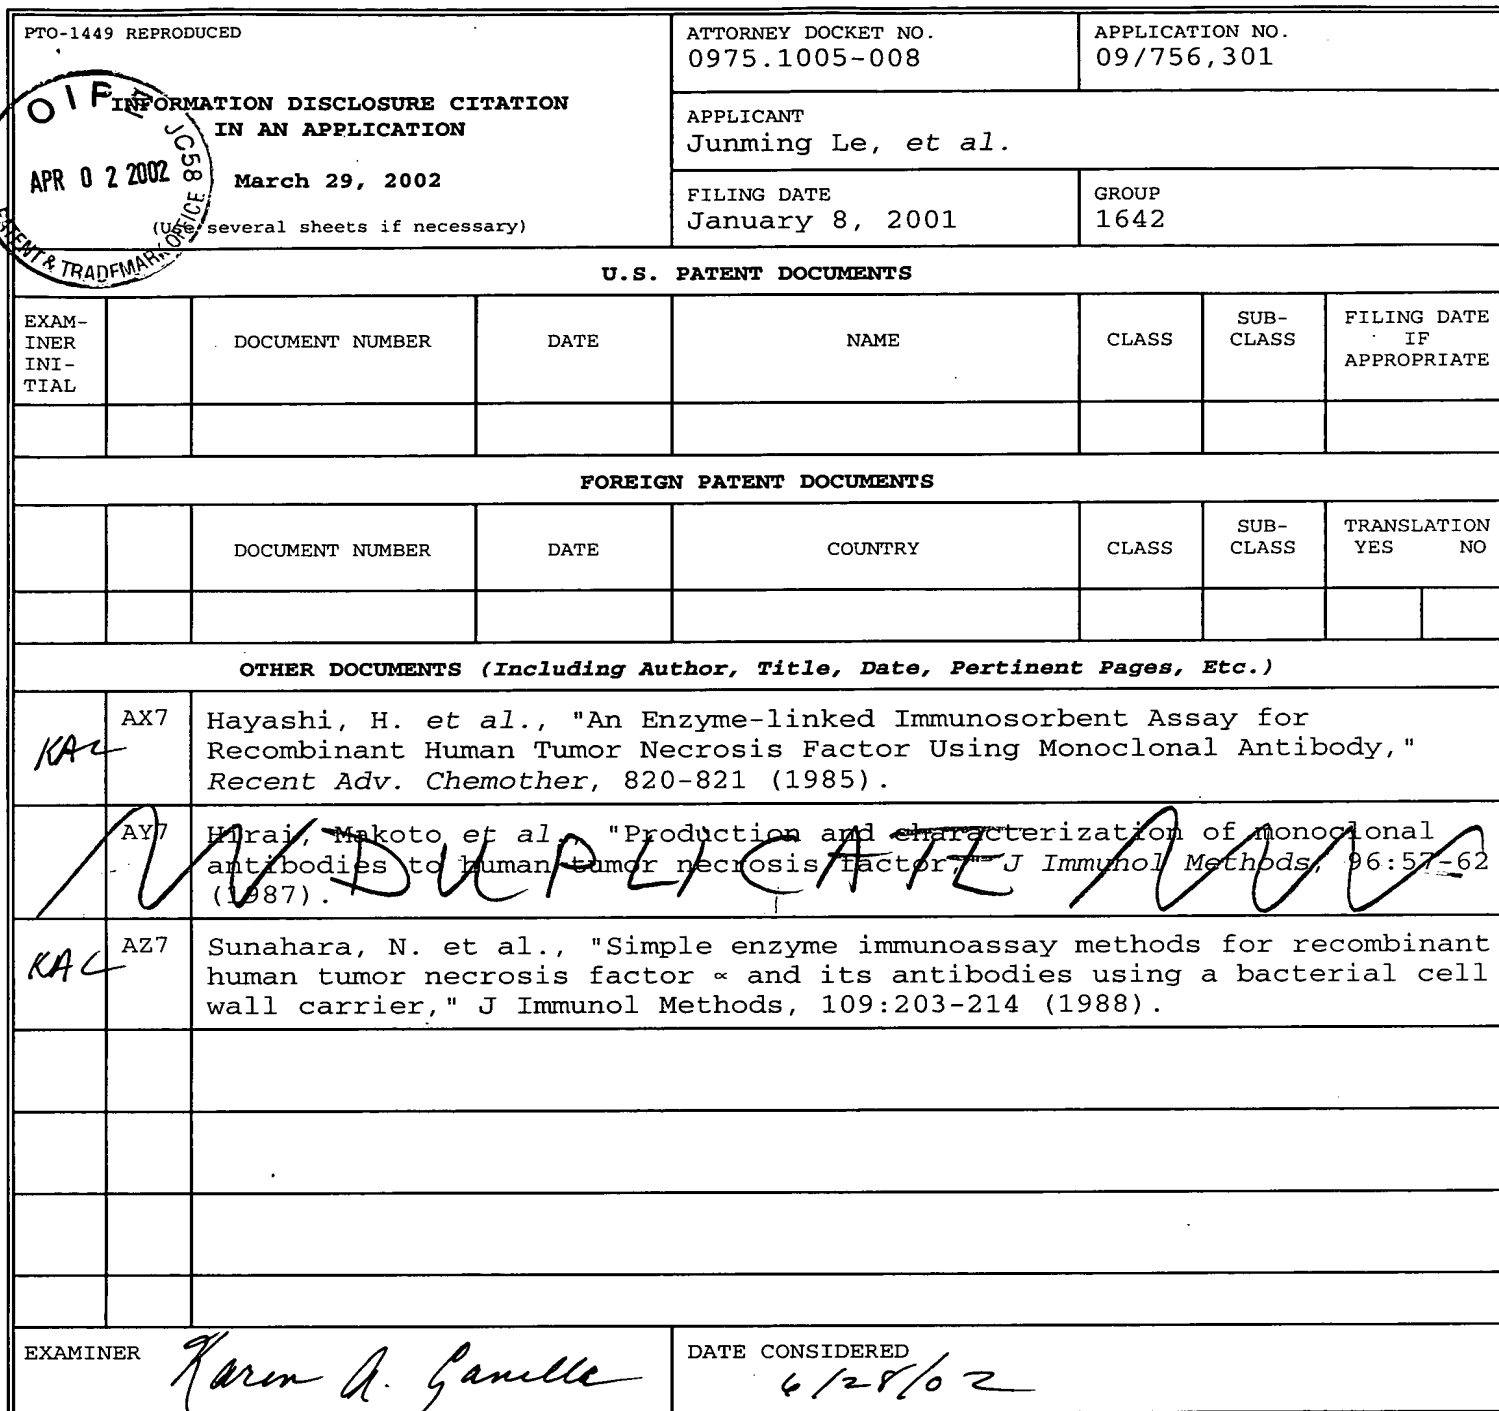 PTO-1449 REPRODUCED
INFORMATION DISCLOSURE CITATION
IN AN APPLICATION
March 29, 2002
(Use several sheets if necessary)
OIPE
JC58
APR 02 2002
PATENT & TRADEMARK OFFICE
ATTORNEY DOCKET NO.
0975.1005-008
APPLICATION NO.
09/756,301
APPLICANT
Junming Le, et al.
FILING DATE
January 8, 2001
GROUP
1642
U.S. PATENT DOCUMENTS
EXAM-
INER
INI-
TIAL
DOCUMENT NUMBER
DATE
NAME
CLASS
SUB-
CLASS
FILING DATE
IF
APPROPRIATE
FOREIGN PATENT DOCUMENTS
DOCUMENT NUMBER
DATE
COUNTRY
CLASS
SUB-
CLASS
TRANSLATION
YES NO
OTHER DOCUMENTS (Including Author, Title, Date, Pertinent Pages, Etc.)
KAC
AX7
Hayashi, H. et al., "An Enzyme-linked Immunosorbent Assay for
Recombinant Human Tumor Necrosis Factor Using Monoclonal Antibody,"
Recent Adv. Chemother, 820-821 (1985).
AY7
Hirai, Makoto et al., "Production and characterization of monoclonal
antibodies to human tumor necrosis factor," J Immunol Methods, 96:57-62
(1987).
DUPLICATE
KAC
AZ7
Sunahara, N. et al., "Simple enzyme immunoassay methods for recombinant
human tumor necrosis factor ∝ and its antibodies using a bacterial cell
wall carrier," J Immunol Methods, 109:203-214 (1988).
EXAMINER
Karen A. Canella
DATE CONSIDERED
6/28/02